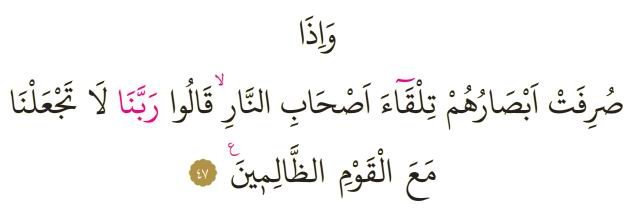 وَاِذَا
صُرِفَتْ اَبْصَارُهُمْ تِلْقَٓاءَ اَصْحَابِ النَّارِۙ قَالُوا رَبَّنَا لَا تَجْعَلْنَا
مَعَ الْقَوْمِ الظَّالِم۪ينَ۟ ٤٧